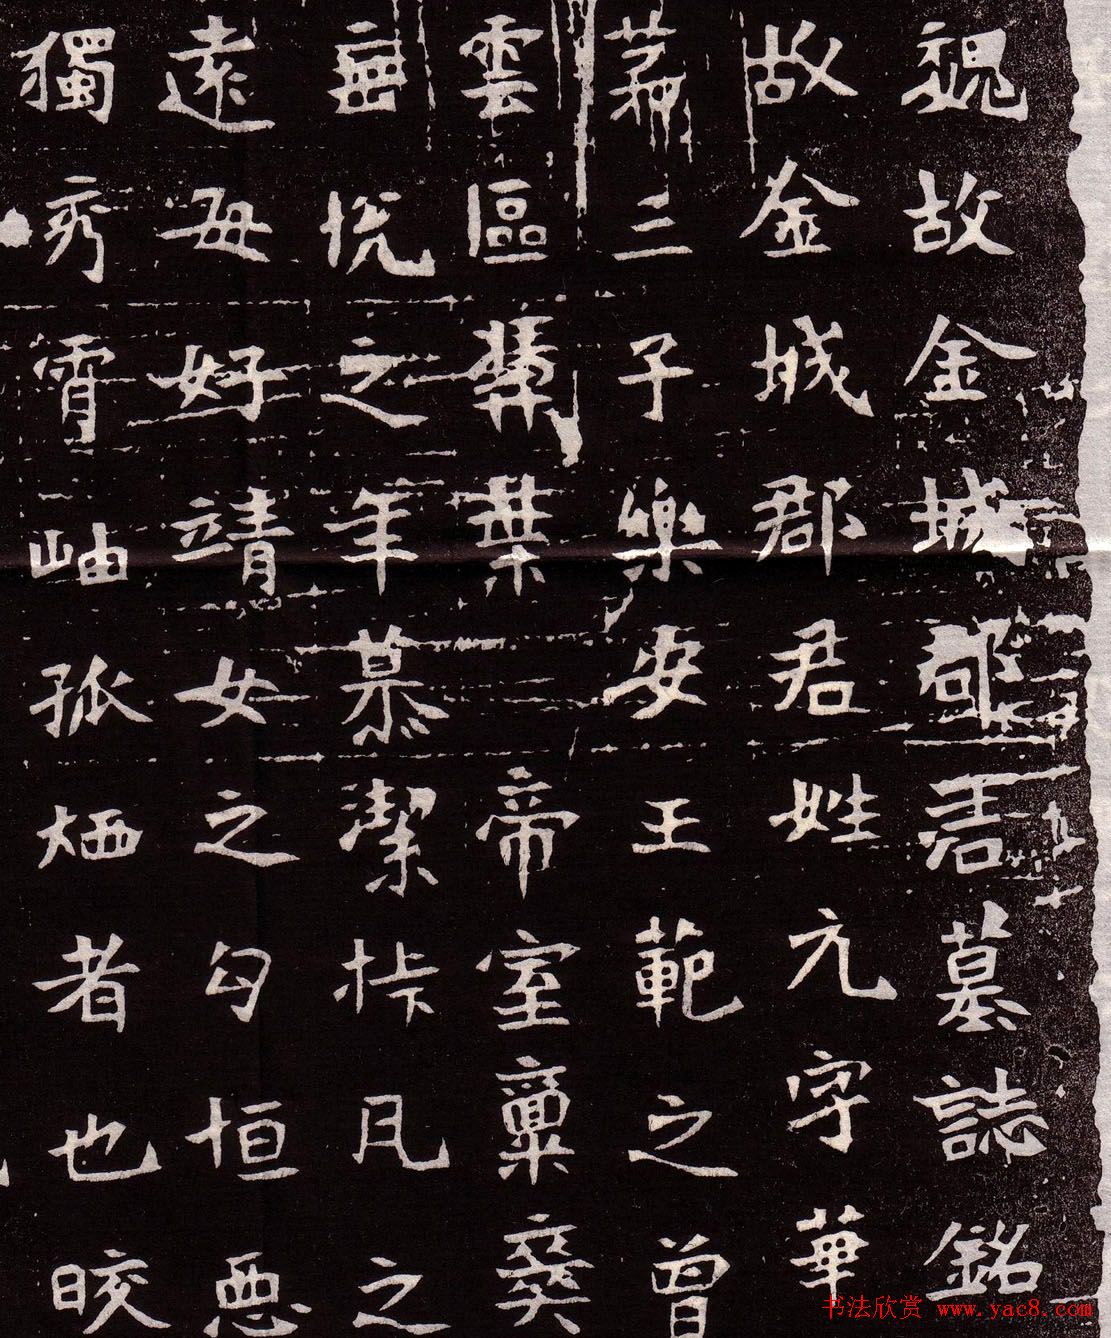 魏故金城郡君墓誌銘
故金城郡君姓元字華
苐三子樂安王範之曾
雲區葉帝室稟彝
悅之年慕潔凡之
遠每好靖女之勾恒惡
獨秀霄岫孤者也晈
书法欣赏 www.yac8.com